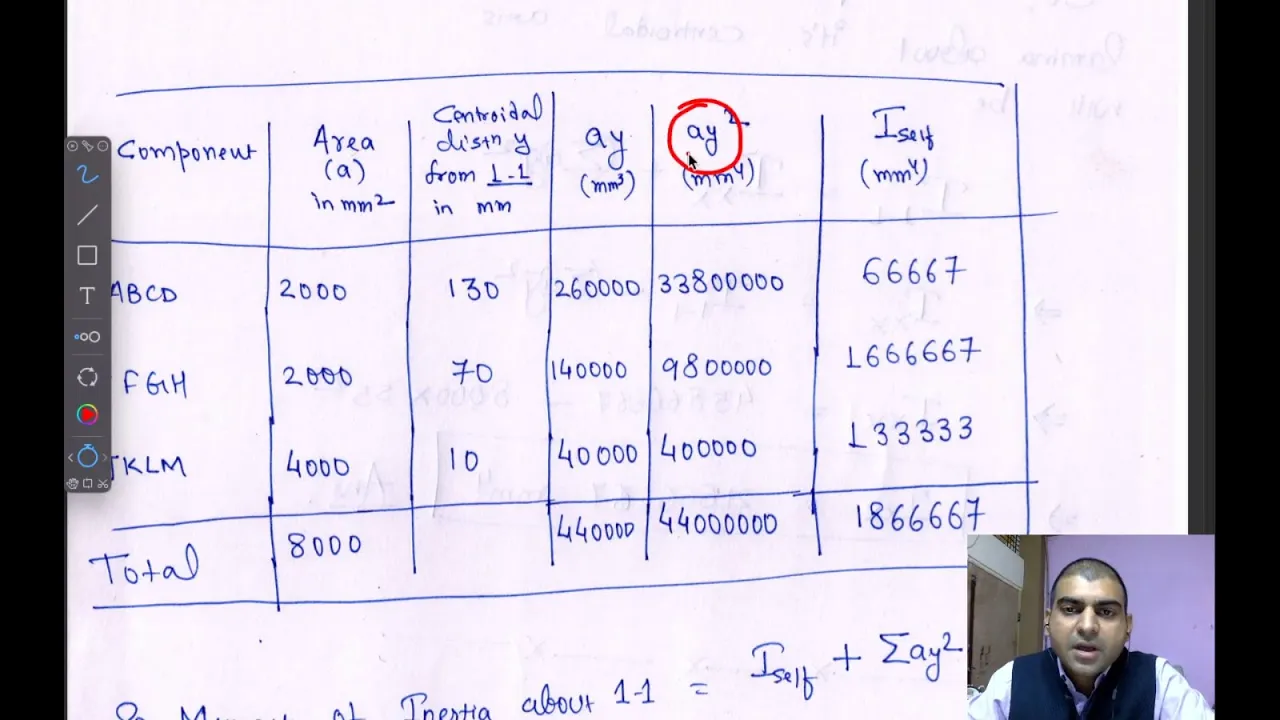 Component
Area
(a)
in mm2
Centroidal
distn y
from 1-1
in mm
ay
(mm3)
ay2
(mm4)
Iself
(mm4)
ABCD 2000 130 260000 33800000 66667
FGH 2000 70 140000 9800000 1666667
JKLM 4000 10 40000 400000 133333
Total 8000 440000 44000000 1866667
Moment of Inertia about 1-1 = Iself + Σay2
T